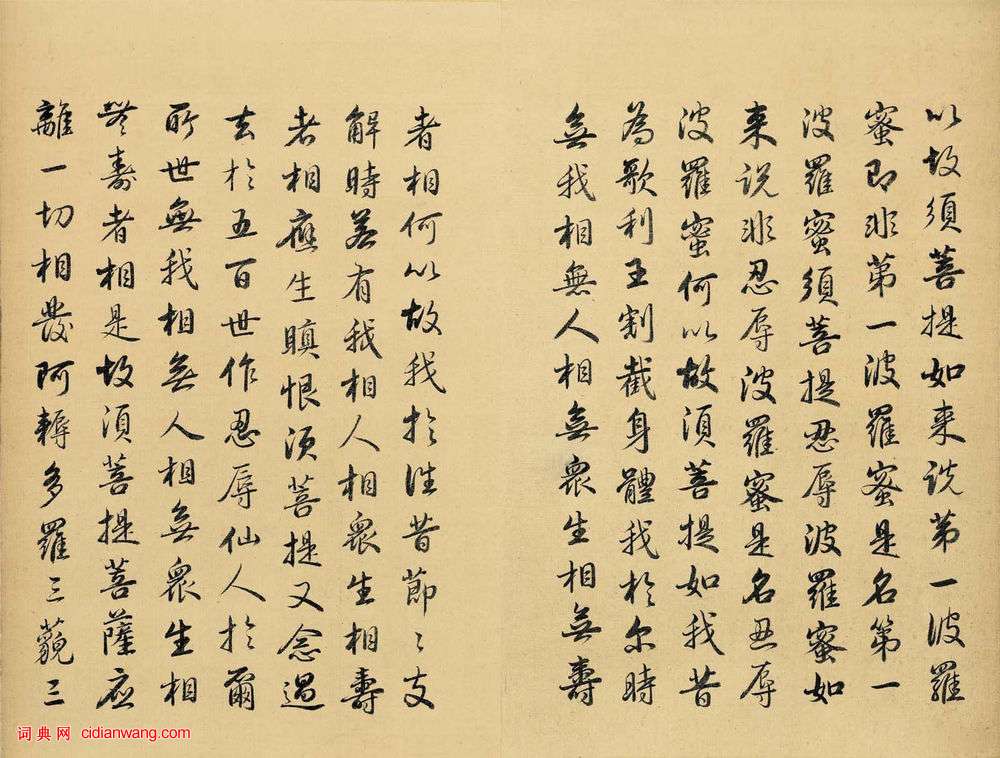 以故須菩提如来説第一波羅
蜜即非第一波羅蜜是名第一
波羅蜜須菩提忍辱波羅蜜如
来説非忍辱波羅蜜是名忍辱
波羅蜜何以故須菩提如我昔
為歌利王割截身體我於尔時
無我相無人相無衆生相無壽
者相何以故我於往昔節〻支
解時若有我相人相衆生相壽
者相應生瞋恨須菩提又念過
去於五百世作忍辱仙人於爾
所世無我相無人相無衆生相
無壽者相是故須菩提菩薩應
離一切相發阿耨多羅三藐三
词典网 cidianwang.com